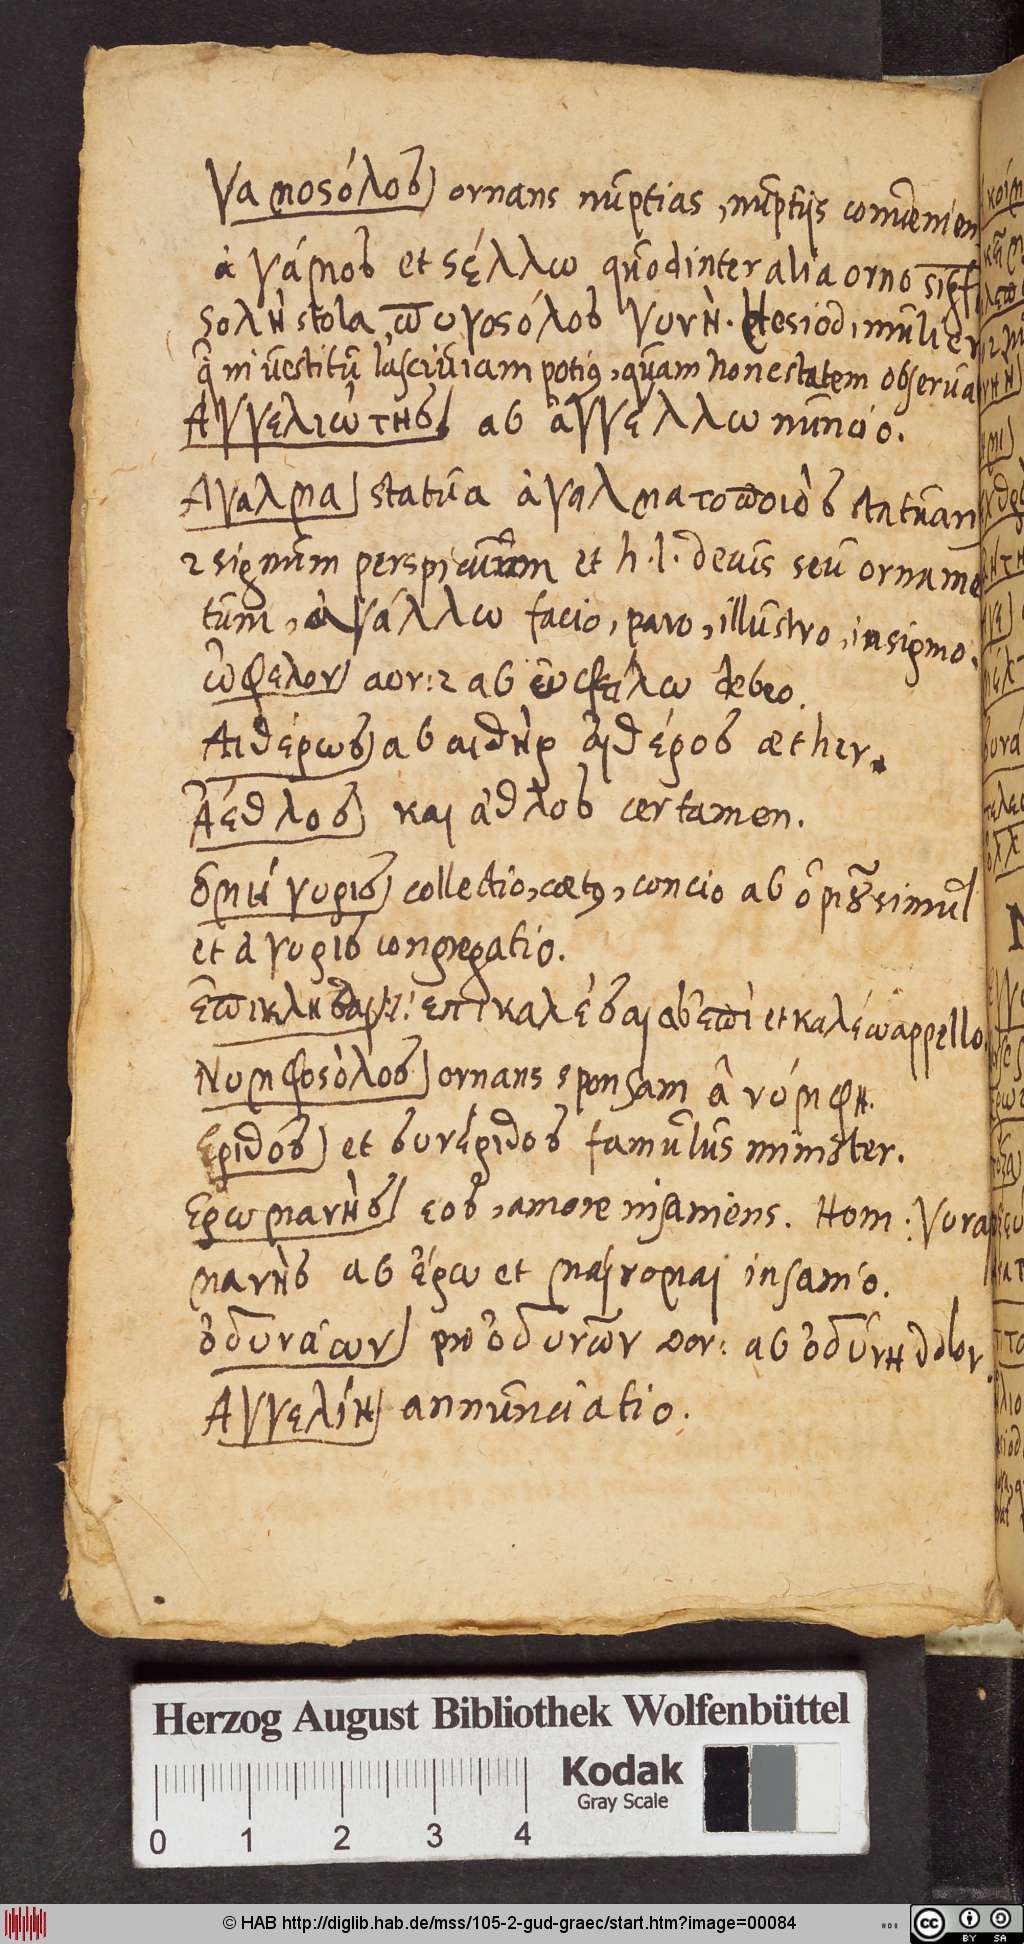 Γαμοστόλος) ornans nuptias, nuptijs convenien
ἀ γάμος et στέλλω quod inter alia orno signf
στολὴ stola, πυγοστόλος γυνὴ. Hesiod, mulier
q̃ in vestitu lasciviam potiꝰ, quam honestatem observa
Αγγελιώτης) ab ἀγγέλλω nuncio.
Αγαλμα) statua ἀγαλματοποιὸς statuari
2 signum et h. l. decus seu orname
tum, ἀγάλλω facio, paro, illustro, insigno.
ὤφελον) aor: 2 ab debeo.
Αιθέρος) ab αιθὴρ αιθέρος æther.
Ἀέθλος) και ἆθλος certamen.
ὁμήγυρις) collectio, cœtꝰ, concio ab ὁμοῦ simul
et αγυρις congregatio.
επικαλέσαι ab ἐπὶ et καλέω appello.
Νυμφοστόλος) ornans sponsam ἀ νύμφη.
Εριθος) et συνέριθος famulus minister.
Ερωμανὴς) εος, amore insaniens. Hom: γυναι
μανὴς ab ἐρω et μαίνομαι insanio.
ὀδυνάων) pro ὀδυνῶν Dor: ab ὀδύνη dolor.
Αγγελίη) annunciatio.
Herzog August Bibliothek Wolfenbüttel
Kodak
Gray Scale
0 1 2 3 4
© HAB http://diglib.hab.de/mss/105-2-gud-graec/start.htm?image=00084
cc BY SA